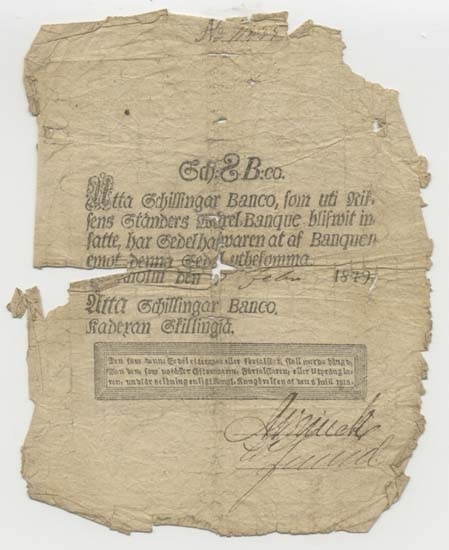 No
Sch: 8 B:co.
Åtta Schillingar Banco, som uti Rik-
sens Ständers Wexel-Banque blifwit in-
satte, har Sedelhafwaren at af Banquen
emot denna Sedel utbekomma.
den Febr 18
Åtta Schillingar Banco.
Kadexan Skillingiä.
Den som denna Sedel eftergör eller förfalskar, skall warda hängd,
Men den, som upptäcker Eftergöraren, Förfalskaren, eller Utpräng la-
ren, undfår belöning enligt Kongl. Kungörelsen af den 8 Julii 1818.